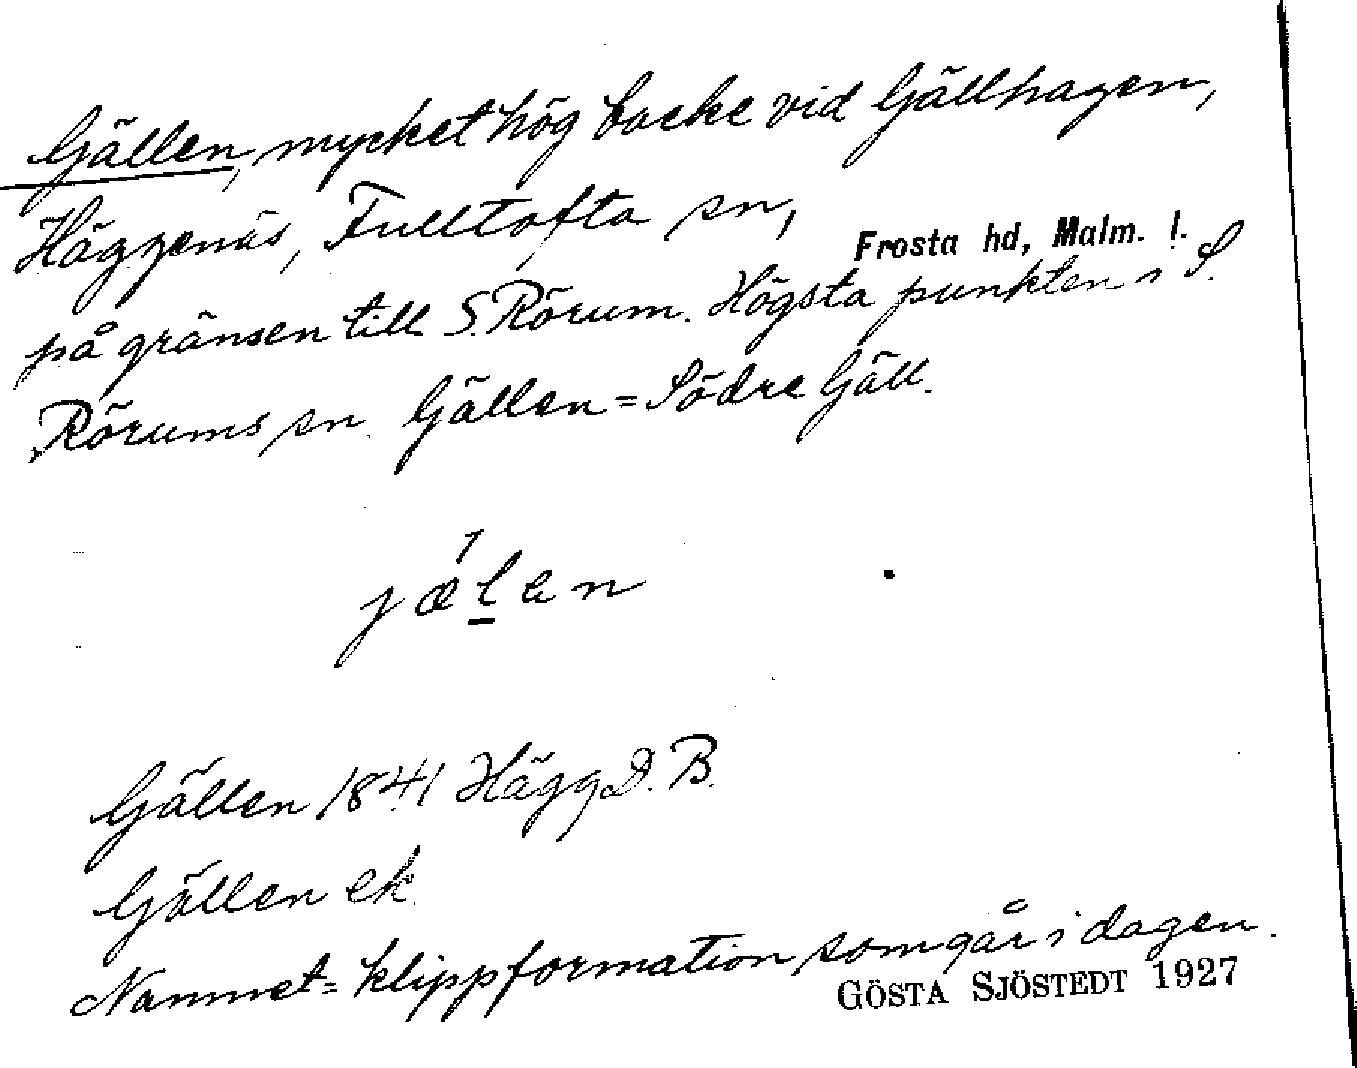 Gällen, mycket hög backe vid Gällhagen,
Häggenäs, Fulltofta sn,
Frosta hd, Malm. l.
på gränsen till S. Rörum. Högsta punkten i S.
Rörums sn. Gällen = Södre Gäll.
jælen
Gällen 1841 Hägg D. B.
Gällen ek.
Namnet = klippformation som går i dagen.
GÖSTA SJÖSTEDT 1927